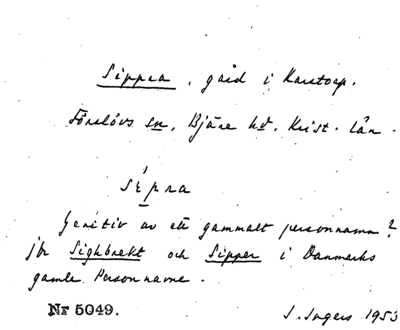 Sippra, gård i Karstorp.
Förslövs sn, Bjäre hd. Krist. län.
sípra
Genitiv av ett gammalt personnamn?
jfr Sighbrekt och Sipper i Danmarks
gamle Personnavne.
Nr 5049.
I. Ingers 1953